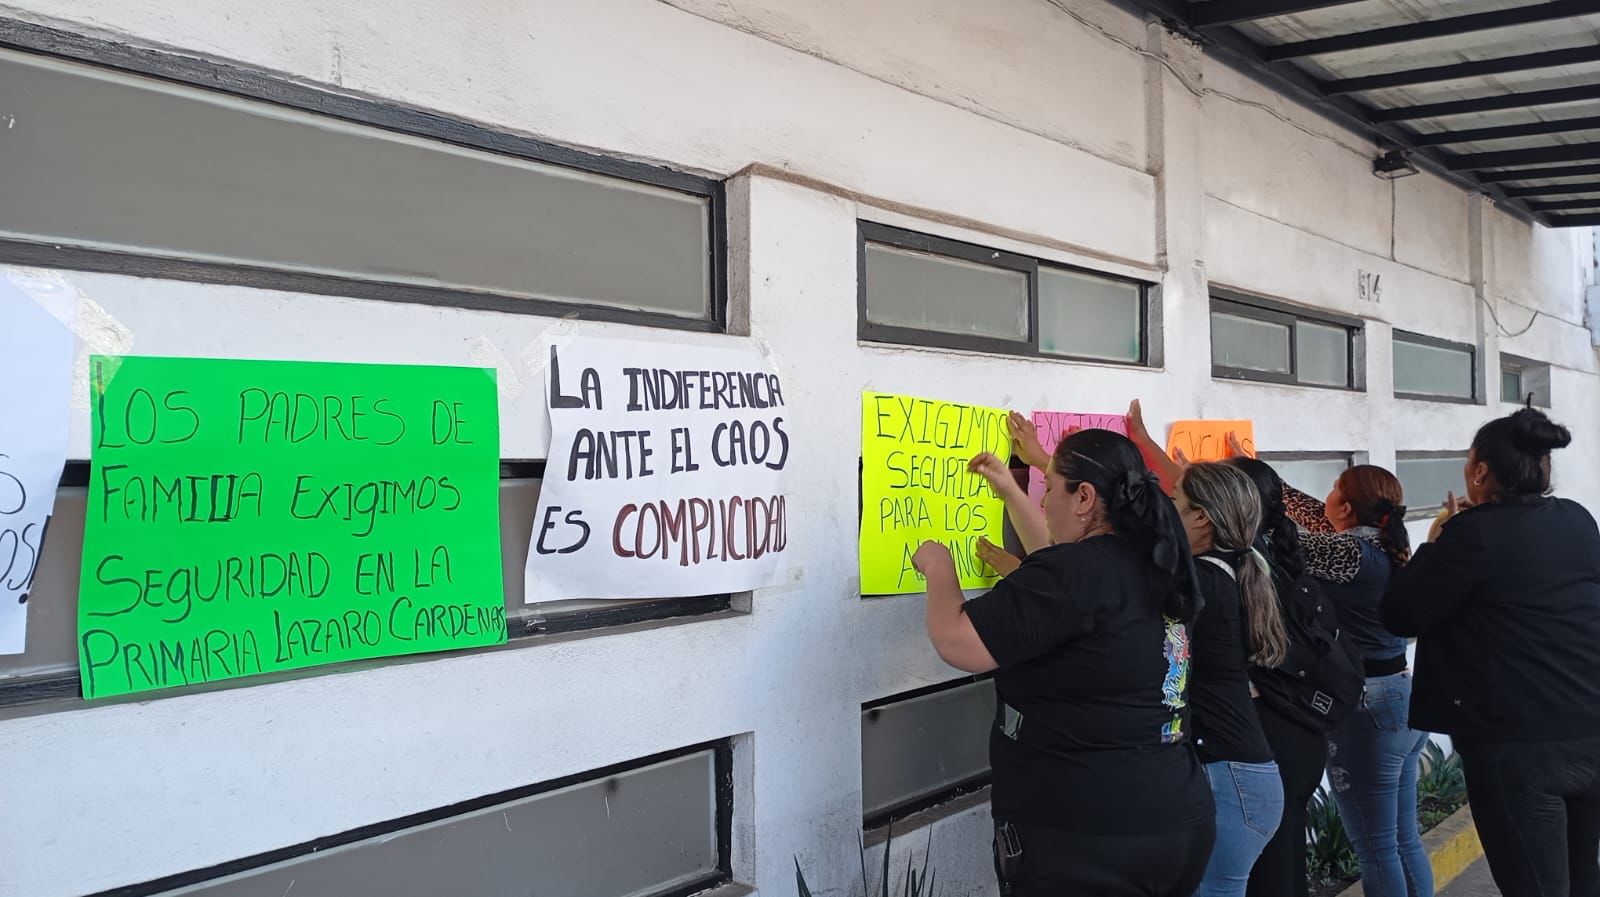 LOS PADRES DE
FAMILIA EXIGIMOS
SEGURIDAD EN LA
PRIMARIA LAZARO CARDENAS
LA INDIFERENCIA
ANTE EL CAOS
ES COMPLICIDAD
EXIGIMOS
SEGURIDAD
PARA LOS
ALUMNOS
EXIGIMOS
514